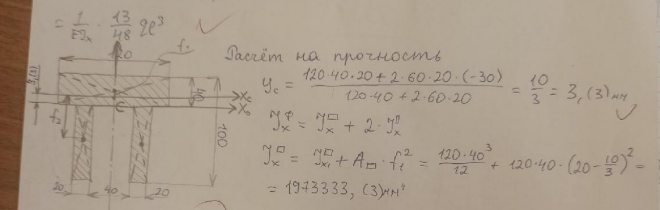 = 1/EJₓ · 13/48 qe³
120
f₁
3,(3)
40
Xc
X₀
C
f₂
100
20
40
20
Расчёт на прочность
yc = (120·40·20 + 2·60·20·(-30))/(120·40 + 2·60·20) = 10/3 = 3,(3) мм
= Jₓ□ + 2·
Jₓ□ = Jₓ₁□ + A□ · f₁² = 120·40³/12 + 120·40·(20 - 10/3)² =
= 1973333,(3) мм⁴